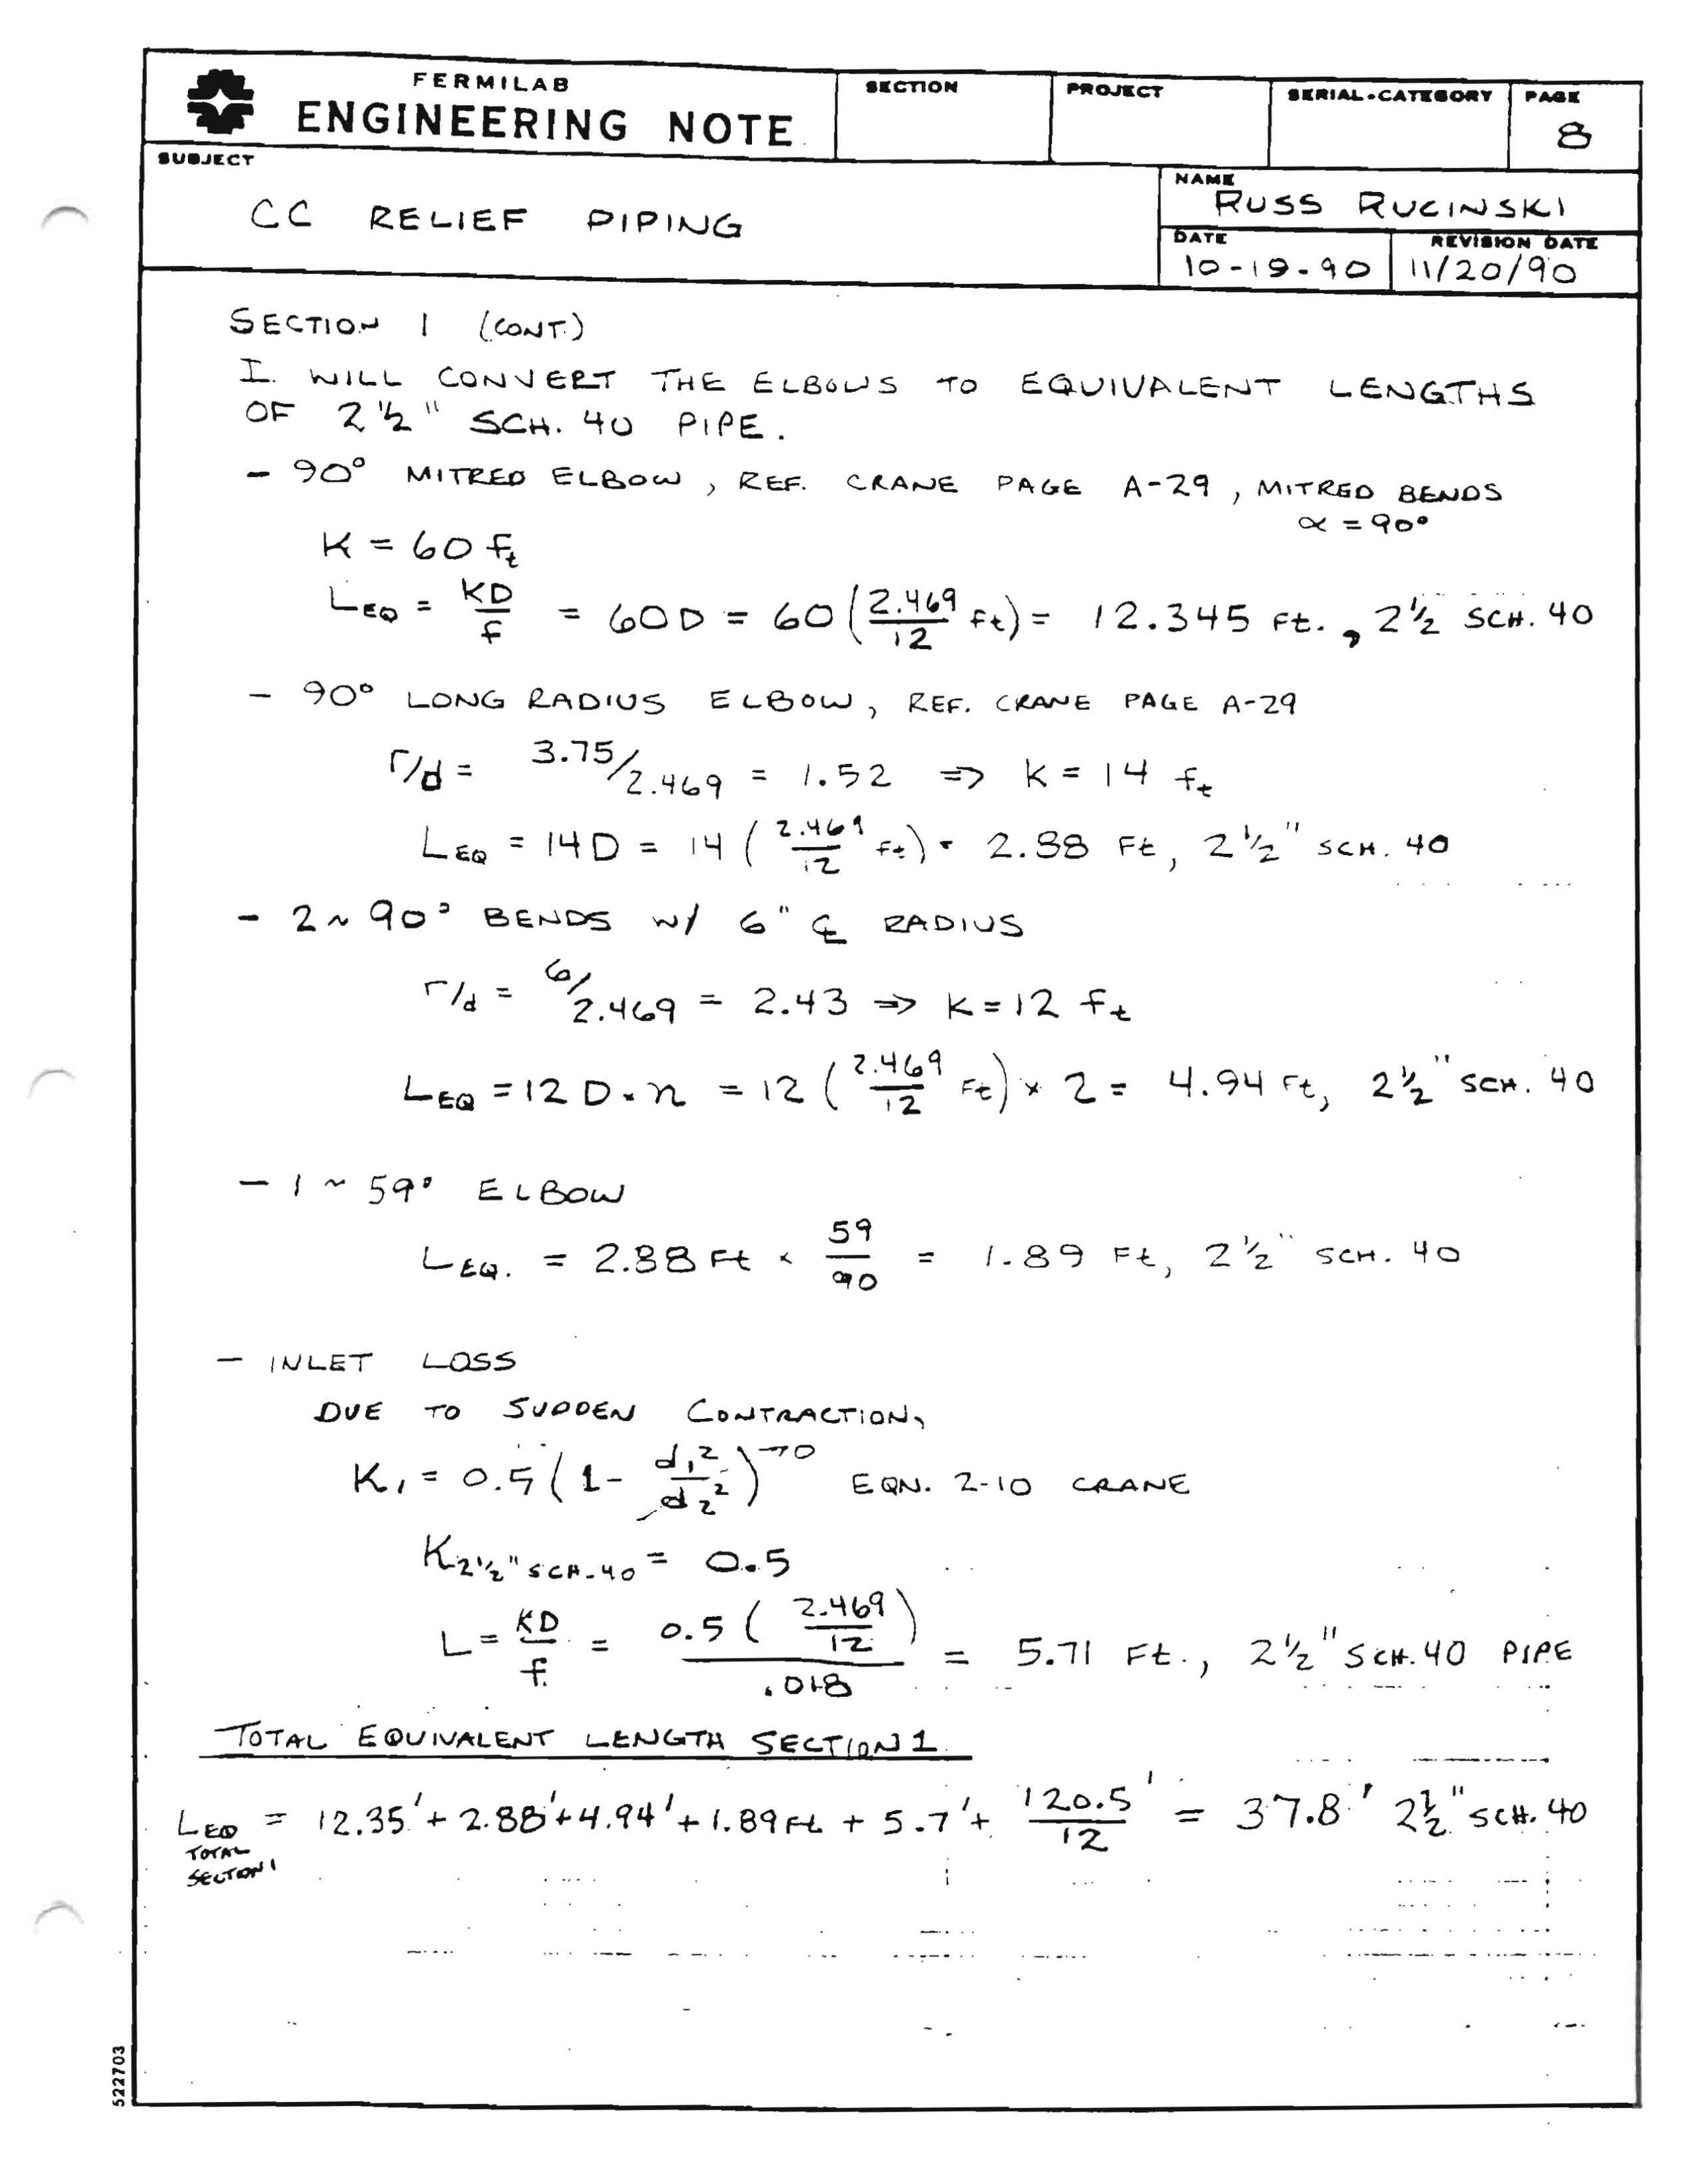 FERMILAB
ENGINEERING NOTE
SECTION
PROJECT
SERIAL-CATEGORY
PAGE
8
SUBJECT
CC RELIEF PIPING
NAME
RUSS RUCINSKI
DATE
10-19-90
REVISION DATE
11/20/90
SECTION 1 (CONT.)
I WILL CONVERT THE ELBOWS TO EQUIVALENT LENGTHS
OF 2 1/2" SCH. 40 PIPE.
- 90° MITRED ELBOW, REF. CRANE PAGE A-29, MITRED BENDS
α = 90°
K = 60 ft
LEQ = KD/f = 60D = 60 (2.469/12 ft) = 12.345 FT., 2 1/2 SCH. 40
- 90° LONG RADIUS ELBOW, REF. CRANE PAGE A-29
r/d = 3.75/2.469 = 1.52 => K = 14 ft
LEQ = 14D = 14 (2.469/12 ft) = 2.88 Ft, 2 1/2" SCH. 40
- 2 ~ 90° BENDS W/ 6" ℄ RADIUS
r/d = 6/2.469 = 2.43 => K = 12 ft
LEQ = 12 D · n = 12 (2.469/12 Ft) × 2 = 4.94 Ft, 2 1/2" SCH. 40
- 1 ~ 59° ELBOW
LEQ. = 2.88 Ft × 59/90 = 1.89 Ft, 2 1/2" SCH. 40
- INLET LOSS
DUE TO SUDDEN CONTRACTION,
K1 = 0.5 (1 - d1²/d2²)→0 EQN. 2-10 CRANE
K2 1/2" SCH-40 = 0.5
L = KD/f = 0.5 (2.469/12)/.018 = 5.71 Ft., 2 1/2" SCH. 40 PIPE
TOTAL EQUIVALENT LENGTH SECTION 1
LEQ TOTAL SECTION 1 = 12.35' + 2.88' + 4.94' + 1.89 Ft + 5.7' + 120.5'/12 = 37.8' 2 1/2" SCH. 40
522703